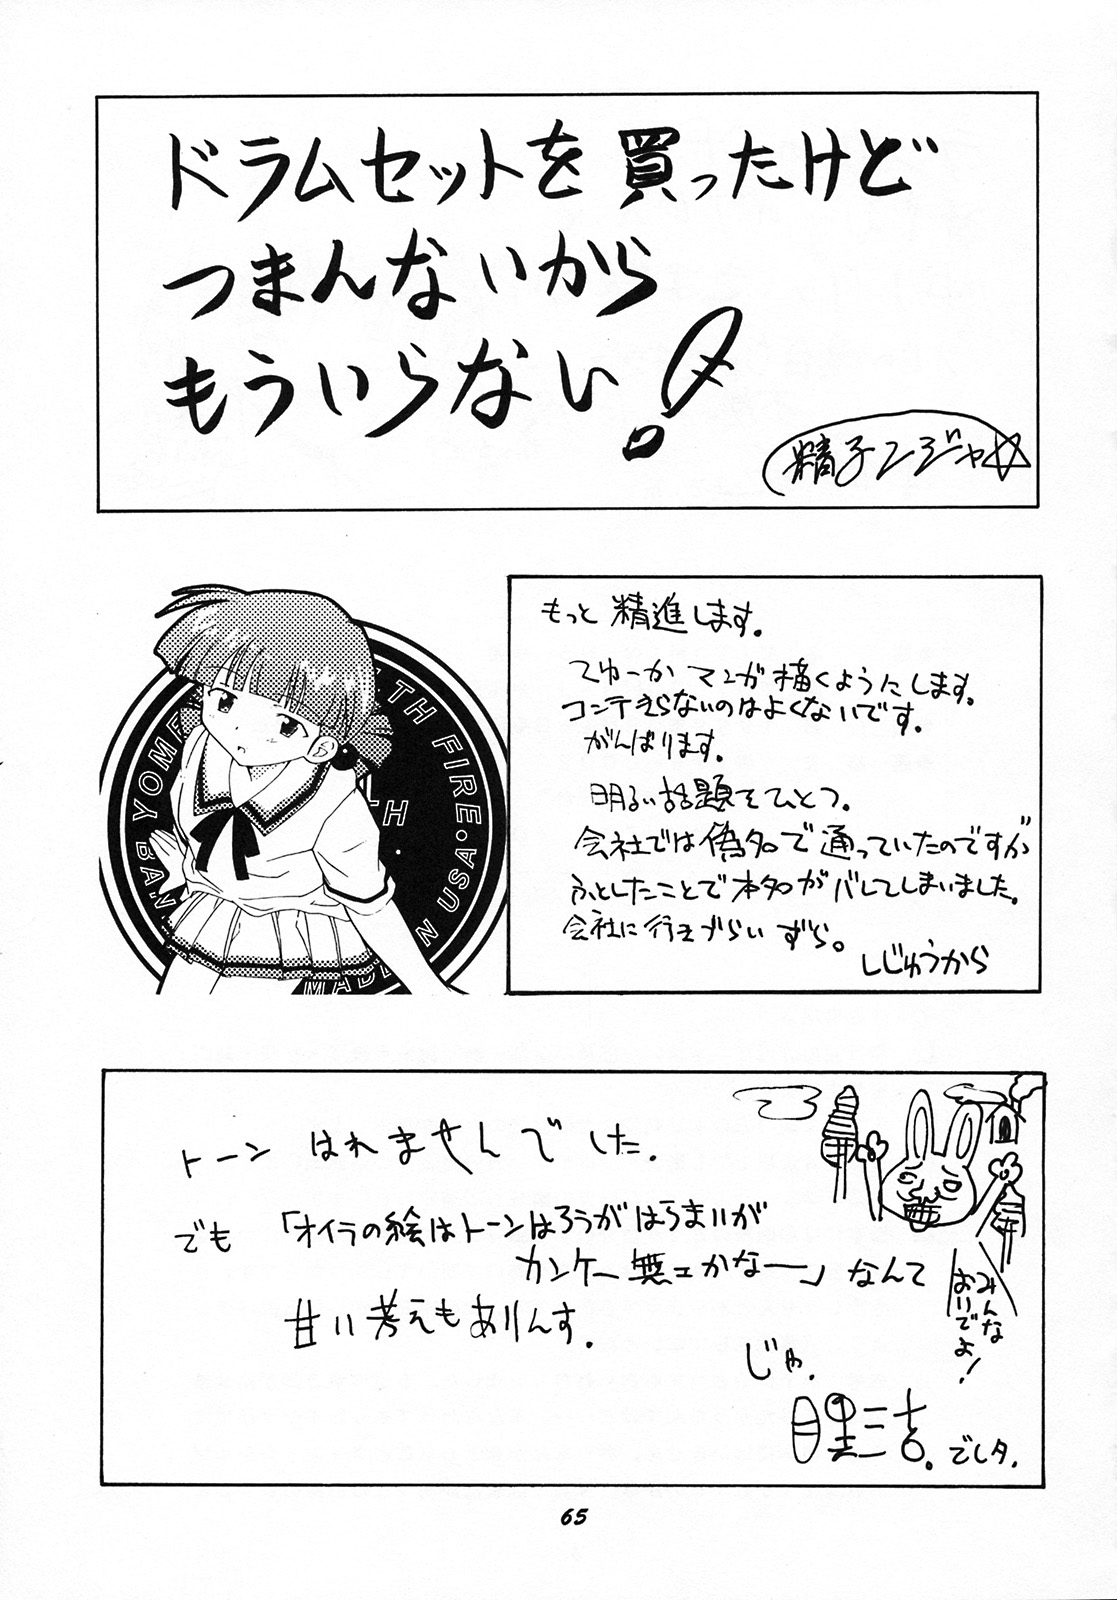 ドラムセットを買ったけど
つまんないから
もういらない!
精子ンジャ☆
もっと精進します。
てゆーかマンガ描くようにします。
コンテ切らないのはよくないです。
がんばります。
明るい話題をひとつ。
会社では偽名で通っていたのですが
ふとしたことで本名がバレてしまいました。
会社に行きづらいずら。
しじゅうから
TH FIRE・USA・
BAYOM
MADE IN
トーンはれませんでした。
でも「オイラの絵はトーンはろうがはらまいが
カンケー無エかなー」なんて
甘い考えもありんす。
じゃ。
三吉。でしタ.
みんな
おいでよ!
65